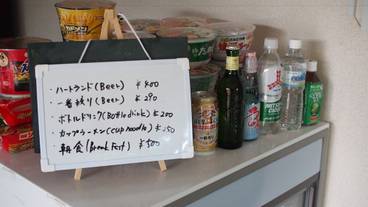 ・ハートランド(Beer) ¥400
・一番搾り(Beer) ¥290
・ボトルドリンク(Bottledrink) ¥200
・カップラーメン(cup noodle) ¥150
・朝食(Breakfast) ¥500